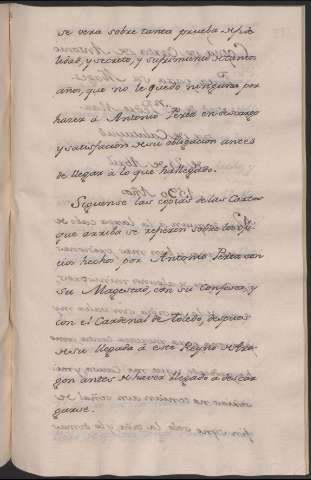 se verá sobre tanta prueba de fide
lidad, y secreto, y sufrimiento de tantos
años, que no le quedó ninguna por
hazer á Antonio Perez en descargo
y satisfaccion de su obligacion antes
de llegar à lo que ha llegado.
Siguense las copias de las Cartas
que arriba se refieren sobre los ofi
cios hechos por Antonio Perez con
su Magestad, con su confesor, y
con el Cardenal de Toledo, despues
de su llegada à este Reyno de Ara
gon antes de haver llegado à descar
garse.